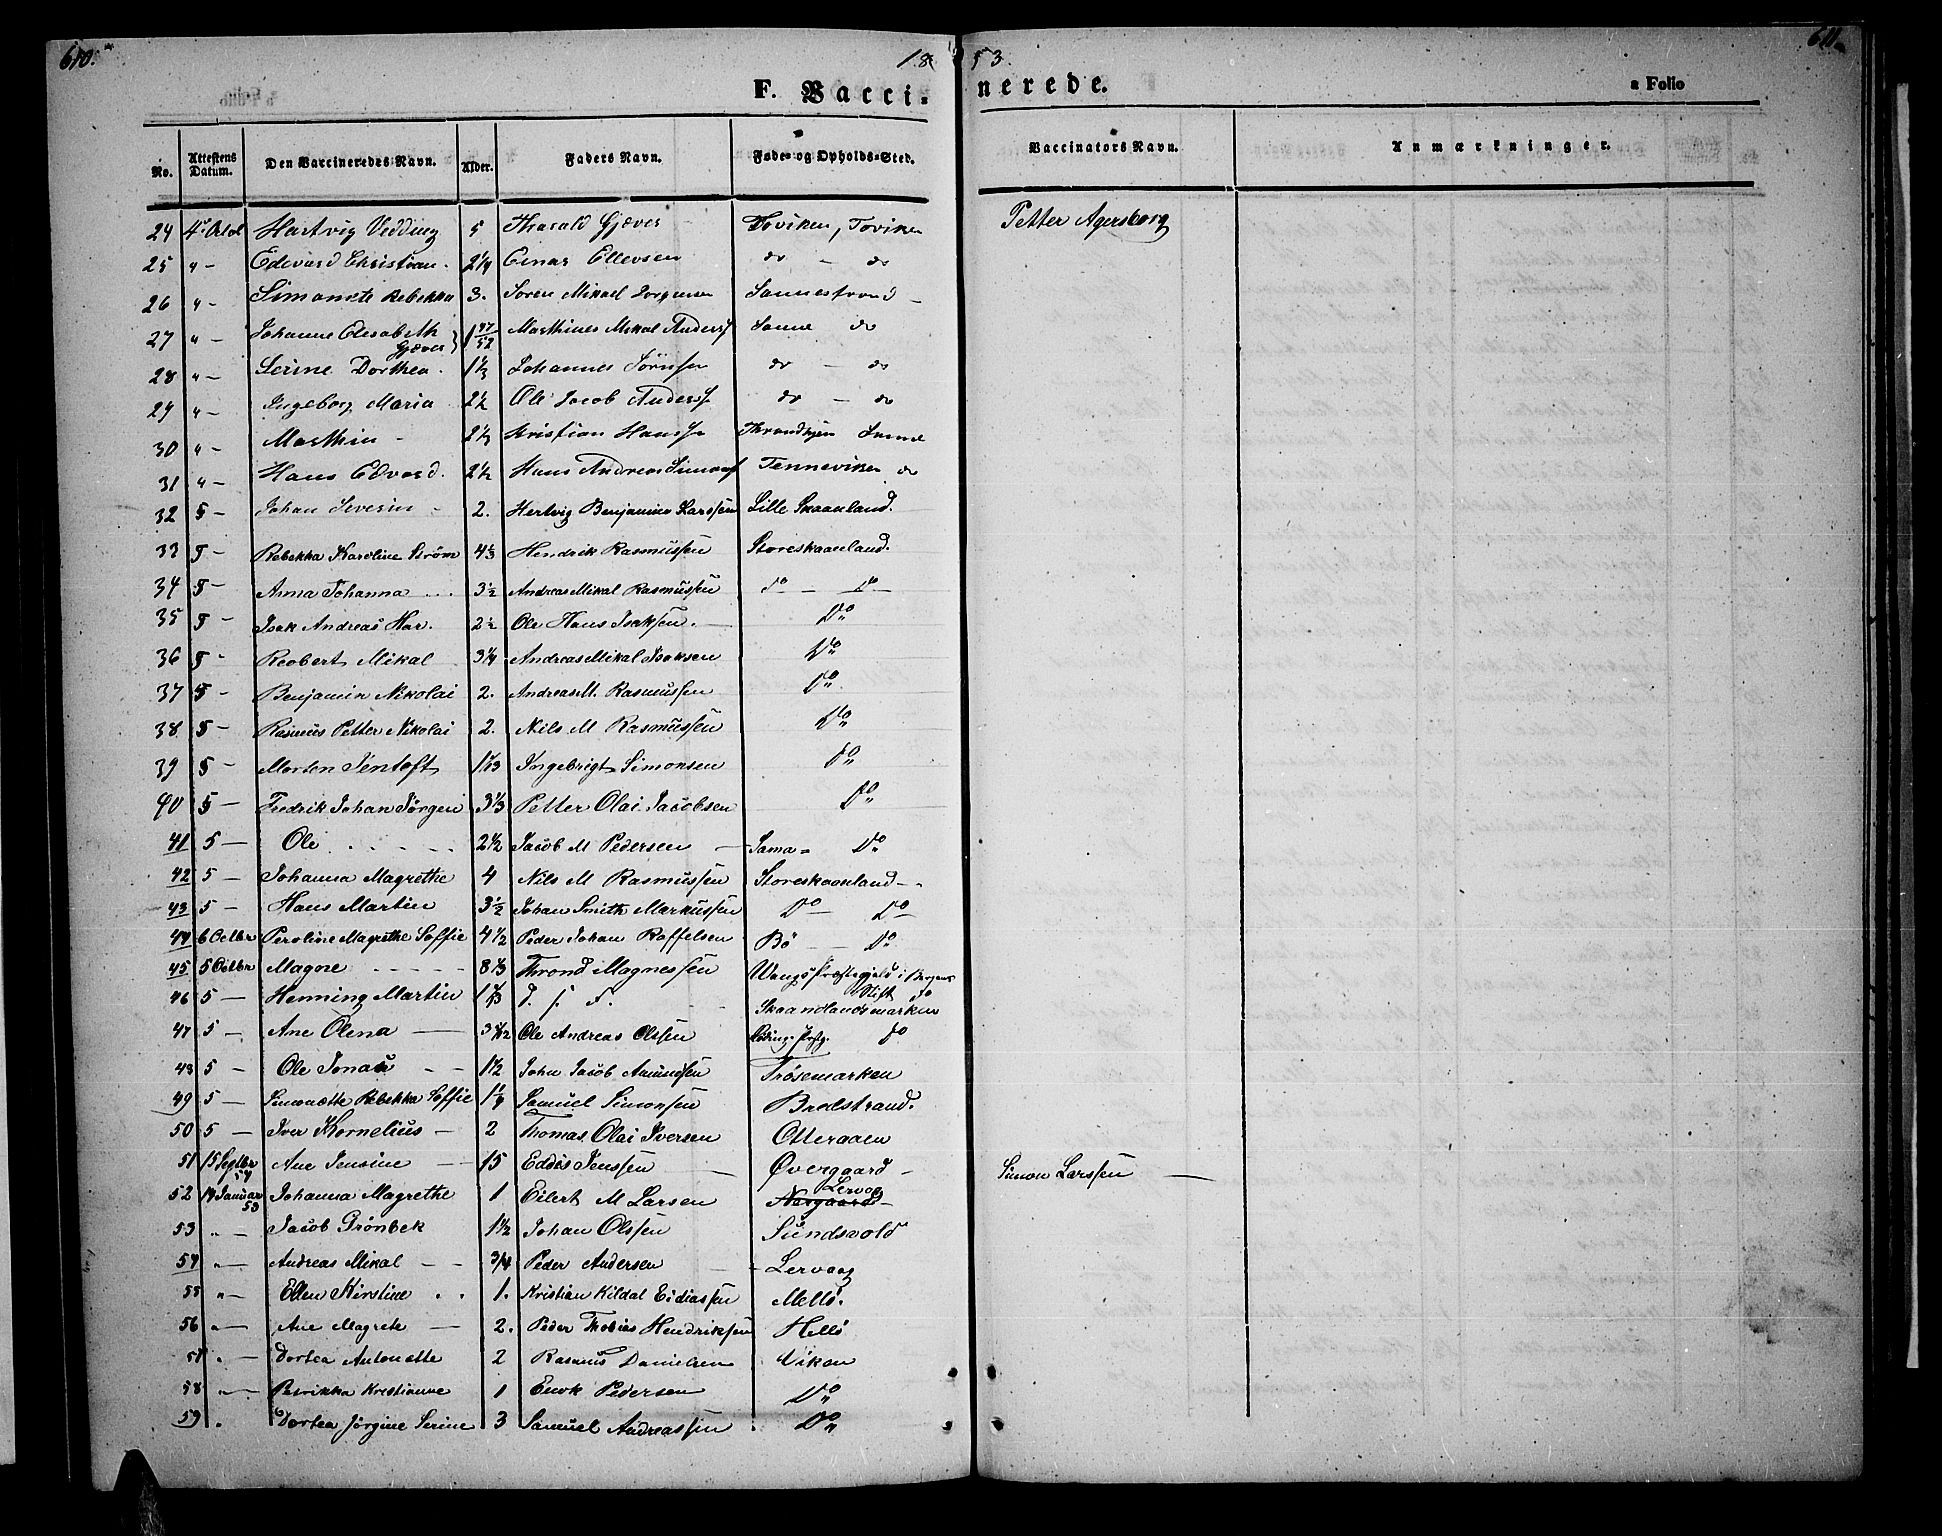 610.
18 53.
611.
F. Vacci-
nerede.
a Folio
No. Attestens Datum. Den Vaccineredes Navn. Alder. Faders Navn. Føde- og Opholds-Sted. Vaccinators Navn. Anmærkninger.
24 4 Octob Hartvig Vedding 5 Tharald Gjæver Toviken, Toviken Petter Agersborg
25 " - Edevard Christian 2 1/4 Einar Ellevsen do - do
26 " - Simonete Rebekka 3. Søren Mikael Jørgensen Sannestrand -
27 " - Johanne Elesabeth Gjæver 1 47/52 Marthines Mikal Anders Sanne do
28 " - Serine Dorthea 1 1/3 Johannes do - do
29 " - Ingeborg Maria 2 1/2 Ole Jacob Anders do - do
30 " - Marthin - 2 1/3 Kristian Hans Sanne
31 " - Hans Edvard. 2 1/2 Hans Andreas Tenneviken do
32 5 - Johan Severin - 2. Hertvig Benjamin Larssen Lille Skaanland.
33 5 - Rebekka Karoline Strøm 4 1/3 Hendrik Rasmussen Storeskaanland.
34 5 - Anna Johanna . . . 3 1/2 Andreas Mikal Rasmussen do - do -
35 5 - Isak Andreas Har. 2 1/2 Ole Hans Isaksen. - Do
36 5 - Reobert Mikal 3 1/4 Andreas Mikal Isaksen Do
37 5 - Benjamin Nikolai 2. Andreas M. Rasmussen Do
38 5 - Rasmus Petter Nikolai 2. Nils M Rasmussen Do
39 5 - Morten Jentoft 1 1/3 Ingebrigt Simonsen Do
40 5 - Fredrik Johan Jørgen 3 1/3 Petter Olai Jacobsen Do
41 5 - Ole . . . . . 2 1/2 Jacob M Pedersen - Sama = Do
42 5 - Johanna Magrethe 4 Nils M Rasmussen Storeskaanland -
43 5 - Hans Martin 3 1/2 Johan Smith Markussen Do - Do -
44 6 Octbr Peroline Magrethe Soffie 4 1/2 Peder Johan Roffelsen Bö - Do
45 5 Octbr Magne - - - - - 8 1/3 Thrond Magnessen Wangs Præstegjeld i Bergens Stift
46 5 - Henning Martin 1 d. s. f. Skaanlandsmarken
47 5 - Ane Olena - 3 Ole Andreas Olssen Do
48 5 - Ole Jonas - - 1 1/2 John Jacob Amundsen Trøsemarken
49 5 - Simonette Rebekka Soffie 1 1/4 Samuel Simonsen Bredstrand.
50 5 - Iver Kornelius - 2 Thomas Olai Iversen Otteraaen
51 15 Septbr 54 Ane Jensine - 15 Eddis Jenssen - Øvergaard - Simon Larssen -
52 14 Januar 53 Johanna Magrethe 1 Eilert M Larsen Nergaard Lervaag
53 " - Jacob Grønbek 1 1/2 Johan Olssen Sundsvold
54 " - Andreas Mikal - - 3/4 Peder Andersen - Lervaag
55 " - Ellen Kirstine . . 1. Kristian Kildal Eidiassen Mellö.
56 " - Ane Magrete - 2. Peder Thobias Hendriksen Hellö
57 " - Dortea Antonette 2 Rasmus Danielsen Viken
58 " - Petrikka Kristianne 1 Enok Pedersen Do
59 " Dortea Jørgine Serine 3 Samuel Andreassen Do